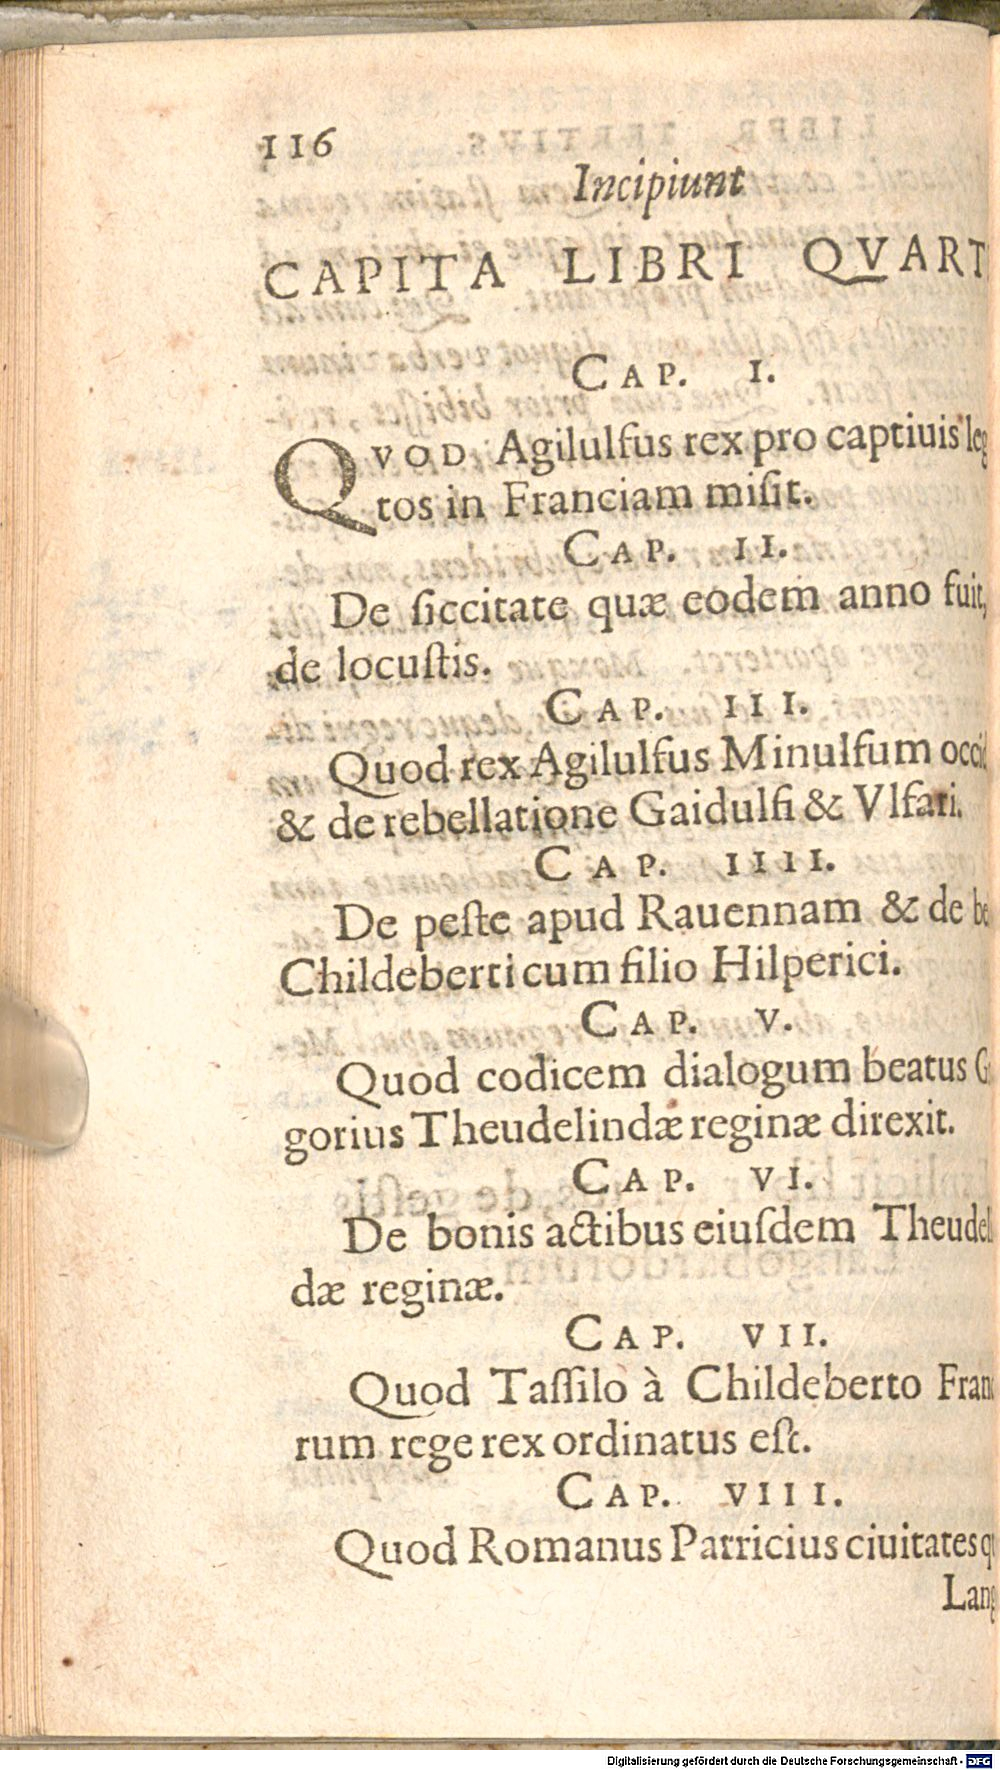 116
Incipiunt
CAPITA LIBRI QVART
CAP. I.
QVOD Agilulfus rex pro captiuis leg
tos in Franciam misit.
CAP. II.
De siccitate quæ eodem anno fuit,
de locustis.
CAP. III.
Quod rex Agilulfus Minulfum occid
& de rebellatione Gaidulfi & Vlfari.
CAP. IIII.
De peste apud Rauennam & de be
Childeberti cum filio Hilperici.
CAP. V.
Quod codicem dialogum beatus G
gorius Theudelindæ reginæ direxit.
CAP. VI.
De bonis actibus eiusdem Theudel
dæ reginæ.
CAP. VII.
Quod Tassilo à Childeberto Franc
rum rege rex ordinatus est.
CAP. VIII.
Quod Romanus Patricius ciuitates q
Lang
Digitalisierung gefördert durch die Deutsche Forschungsgemeinschaft - DFG